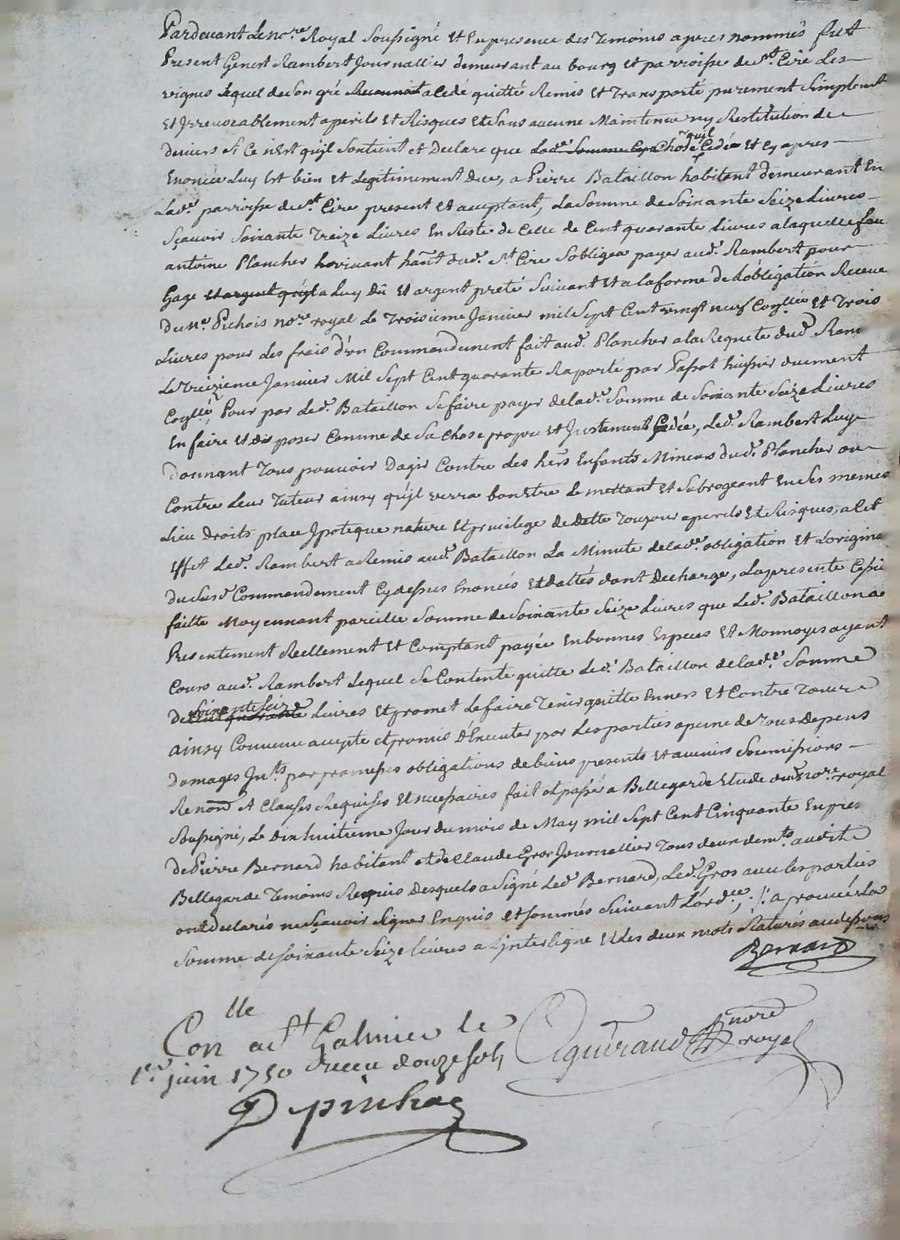 Pardevant Le nore Royal Soussigné Et En presence des Temoins apres nommés fut
Present Genest Rambert Journallier demeurant au bourg et parroisse de St. Ciré Les
vignes Lequel de Son gré a Cedé quitté Remis Et Transporté purement Simplemt
Et Irrevocablement aperils et Risques Et Sans aucune Maintenue ny Restitution de
deniers Si Ce n'Est quil Soutient et Declare que Lade. Somme Cy a Chose quil Cedée Et Cy apres
Enoncée Luy Est bien Et Legitimement due, a Pierre Bataillon habitant demeurant En
Lade. parroisse de St. Cire present Et acceptant, La Somme de Soixante Seize Livres
Sçavoir Soixante Treize Livres En Reste de Celle de Cent quarante Livres a laquelle feu
antoine Plancher hant. dud. St. Cire Sobligea payer aud. Rambert pour
Gage a Luy dû Et argent preté Suivant Et a la forme de Lobligation Receue
du Me. Pichois nore royal Le Troisieme Janvier mil Sept Cent vingt neuf Collée Et Trois
Livres pour des frais d'un Commandement fait aud. Plancher a la Requete dud. Ram
Le Treizieme Janvier Mil Sept Cent quarante Raporté par Passot huissier duement
Collé, Pour par Led. Bataillon Se faire payer de lad. Somme de Soixante Seize Livres
En faire et dis poser Comme de Sa Chose propre et Justement Cedée, Led. Rambert Luy
donnant Tous pouvoir Dagir Contre des hers Enfants Mineurs dud. Plancher ou
Contre Leur Tuteur ainsy quil verra bon Etre Le mettant Et Subrogeant En Ses memes
Lieu Droits place Ipoteque nature Et privilege de dette Toujour aperils Et Risques, a Cet
Effet Led. Rambert a Remis aud. Bataillon La Minute de lade. obligation Et Lorigina
du Susd. Commandement Cy dessus Enoncés Et dattés dont decharge, La presente Cessi
faitte Moyennant pareille Somme de Soixante Seize Livres que Led. Bataillon a
Presentement Reellement Et Comptant payée En bonnes Especes Et Monnoyes ayant
Cours aud. Rambert Lequel Se Contente quitte Led. Bataillon de lade. Somme
de Soixante Seize Livres Et promet Le faire Tenir quitte Envers Et Contre Tous
ainsy Convenu accepté et promis d'Executer par Les parties a peine de Tous depens
domages Jnts. par promesses obligations de biens presents Et avenirs Soumissions
Renond. Et Clauses Requises Et necessaires fait Et passé a Bellegarde Etude dud. nore royal
Soussigné, Le dix huitieme Jour du mois de May mil Sept Cent Cinquante En pres
de Pierre Bernard habitant et de Claude Gros Journallier Tous deux demts. audit
Bellegarde Temoins Requis Desquels a Signé Led. Bernard, Led. Gros avec les parties
ont declarés ne Sçavoir Signer Enquis Et Sommés Suivant Lordce; aprouvée La
Somme de Soixante Seize Livres a Linterligne Et Les deux mots Raturés au dessus
Bernard
Conlle a St Galmier le
1er juin 1750 Receu douze sols
nore royal
Depinhac